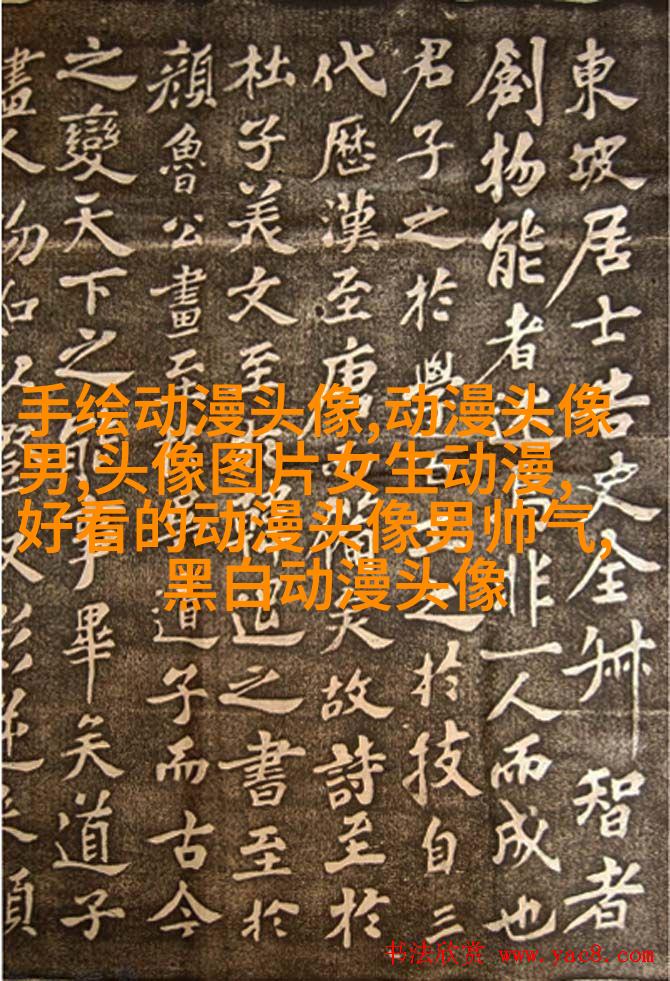 東坡居士史全智者
創物能者非一人而成也
君子之於學之於技自三
代歷漢至唐備矣故詩至於
杜子美文至於退之書至於
顏魯公畫至道子而古今
之變天下之能事畢矣道子
畫人物
手绘动漫头像,动漫头像
男,头像图片女生动漫,
好看的动漫头像男帅气,
黑白动漫头像
书法欣赏 www.yac8.com